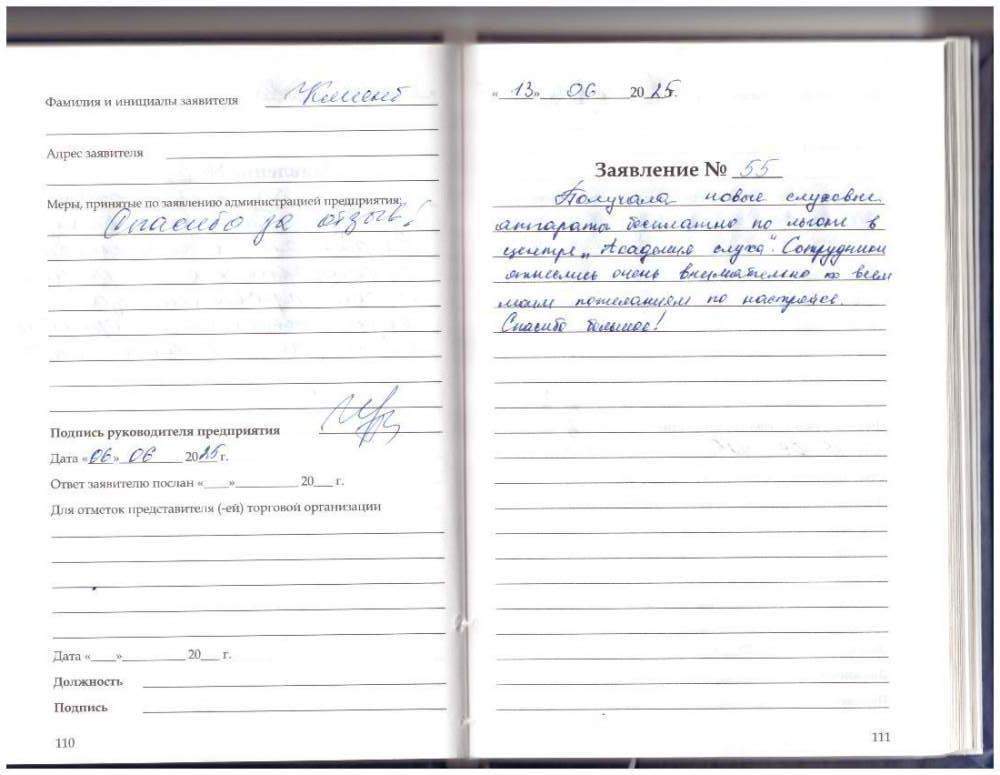 Фамилия и инициалы заявителя Клиент
Адрес заявителя
Меры, принятые по заявлению администрацией предприятия:
Спасибо за отзыв!
Подпись руководителя предприятия
Дата «06» 06 2025 г.
Ответ заявителю послан «____»__________ 20___ г.
Для отметок представителя (-ей) торговой организации
Дата «____»__________ 20___ г.
Должность
Подпись
110
«13» 06 2025г.
Заявление № 55
Получала новые слуховые
аппараты бесплатно по льготе в
центре „Академия слуха". Сотрудники
отнеслись очень внимательно ко всем
моим пожеланием по настройке.
Спасибо большое!
111